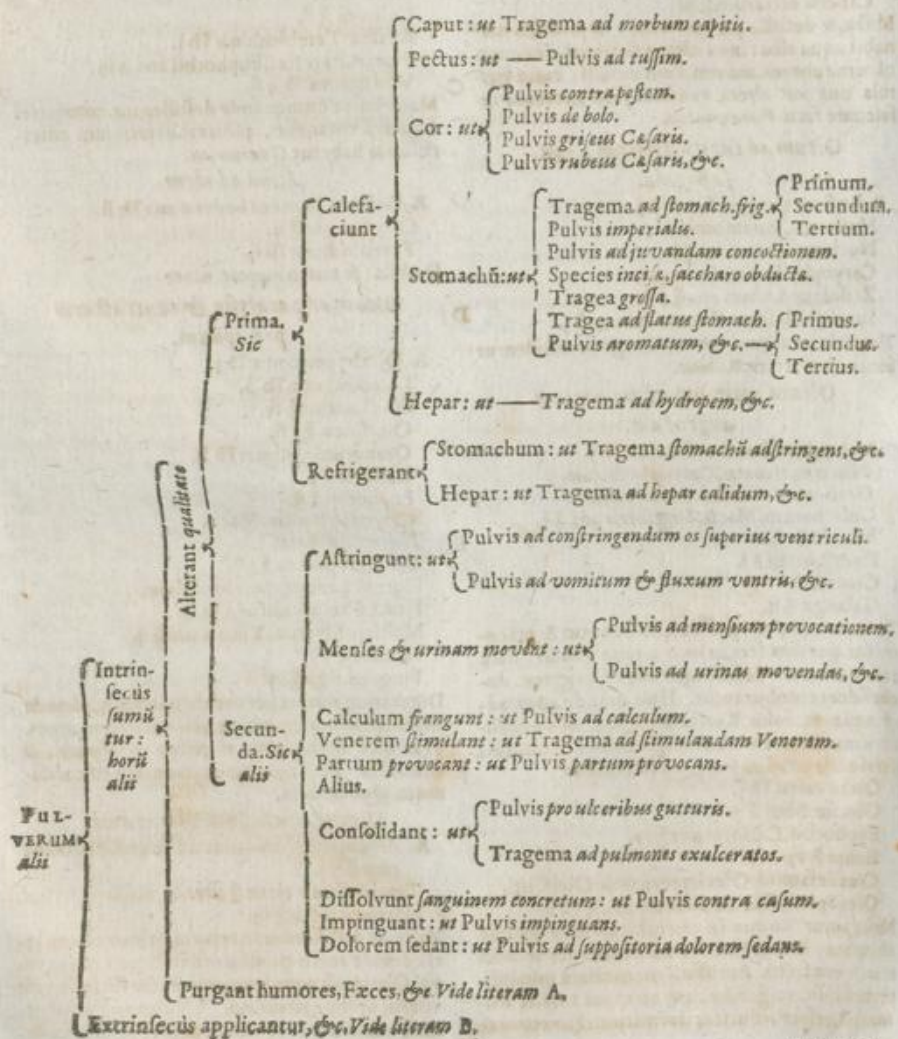 Caput: ut Tragema ad morbum capitis.
Pectus: ut — Pulvis ad tussim.
Cor: ut
Pulvis contra pestem.
Pulvis de bolo.
Pulvis griseus Cæsaris.
Pulvis rubeus Cæsaris, &c.
Calefa-
ciunt
Stomachū: ut
Tragema ad stomach. frig.
Primum.
Secundum.
Tertium.
Pulvis imperialis.
Pulvis adjuvandam concoctionem.
Species incisæ, saccharo obducta.
Tragea grossa.
Tragea ad flatus stomach.
Pulvis aromatum, &c.
Primus.
Secundus.
Tertius.
Prima.
Sic
Hepar: ut — Tragema ad hydropem, &c.
Refrigerant
Stomachum: ut Tragema stomachū adstringens, &c.
Hepar: ut Tragema ad hepar calidum, &c.
Alterant qualitate
Astringunt: ut
Pulvis ad constringendum os superius ventriculi.
Pulvis ad vomitum & fluxum ventris, &c.
Menses & urinam movent: ut
Pulvis ad mensium provocationem.
Pulvis ad urinas movendas, &c.
Intrin-
secùs
sumū
tur:
horū
alii
Secun-
da. Sic
alii
Calculum frangunt: ut Pulvis ad calculum.
Venerem stimulant: ut Tragema ad stimulandam Venerem.
Partum provocant: ut Pulvis partum provocans.
Alius.
PUL-
VERUM
alii
Consolidant: ut
Pulvis pro ulceribus gutturis.
Tragema ad pulmones exulceratos.
Dissolvunt sanguinem concretum: ut Pulvis contra casum.
Impinguant: ut Pulvis impinguans.
Dolorem sedant: ut Pulvis ad suppositoria dolorem sedans.
Purgant humores, Fæces, &c Vide literam A.
Extrinsecùs applicantur, &c, Vide literam B.